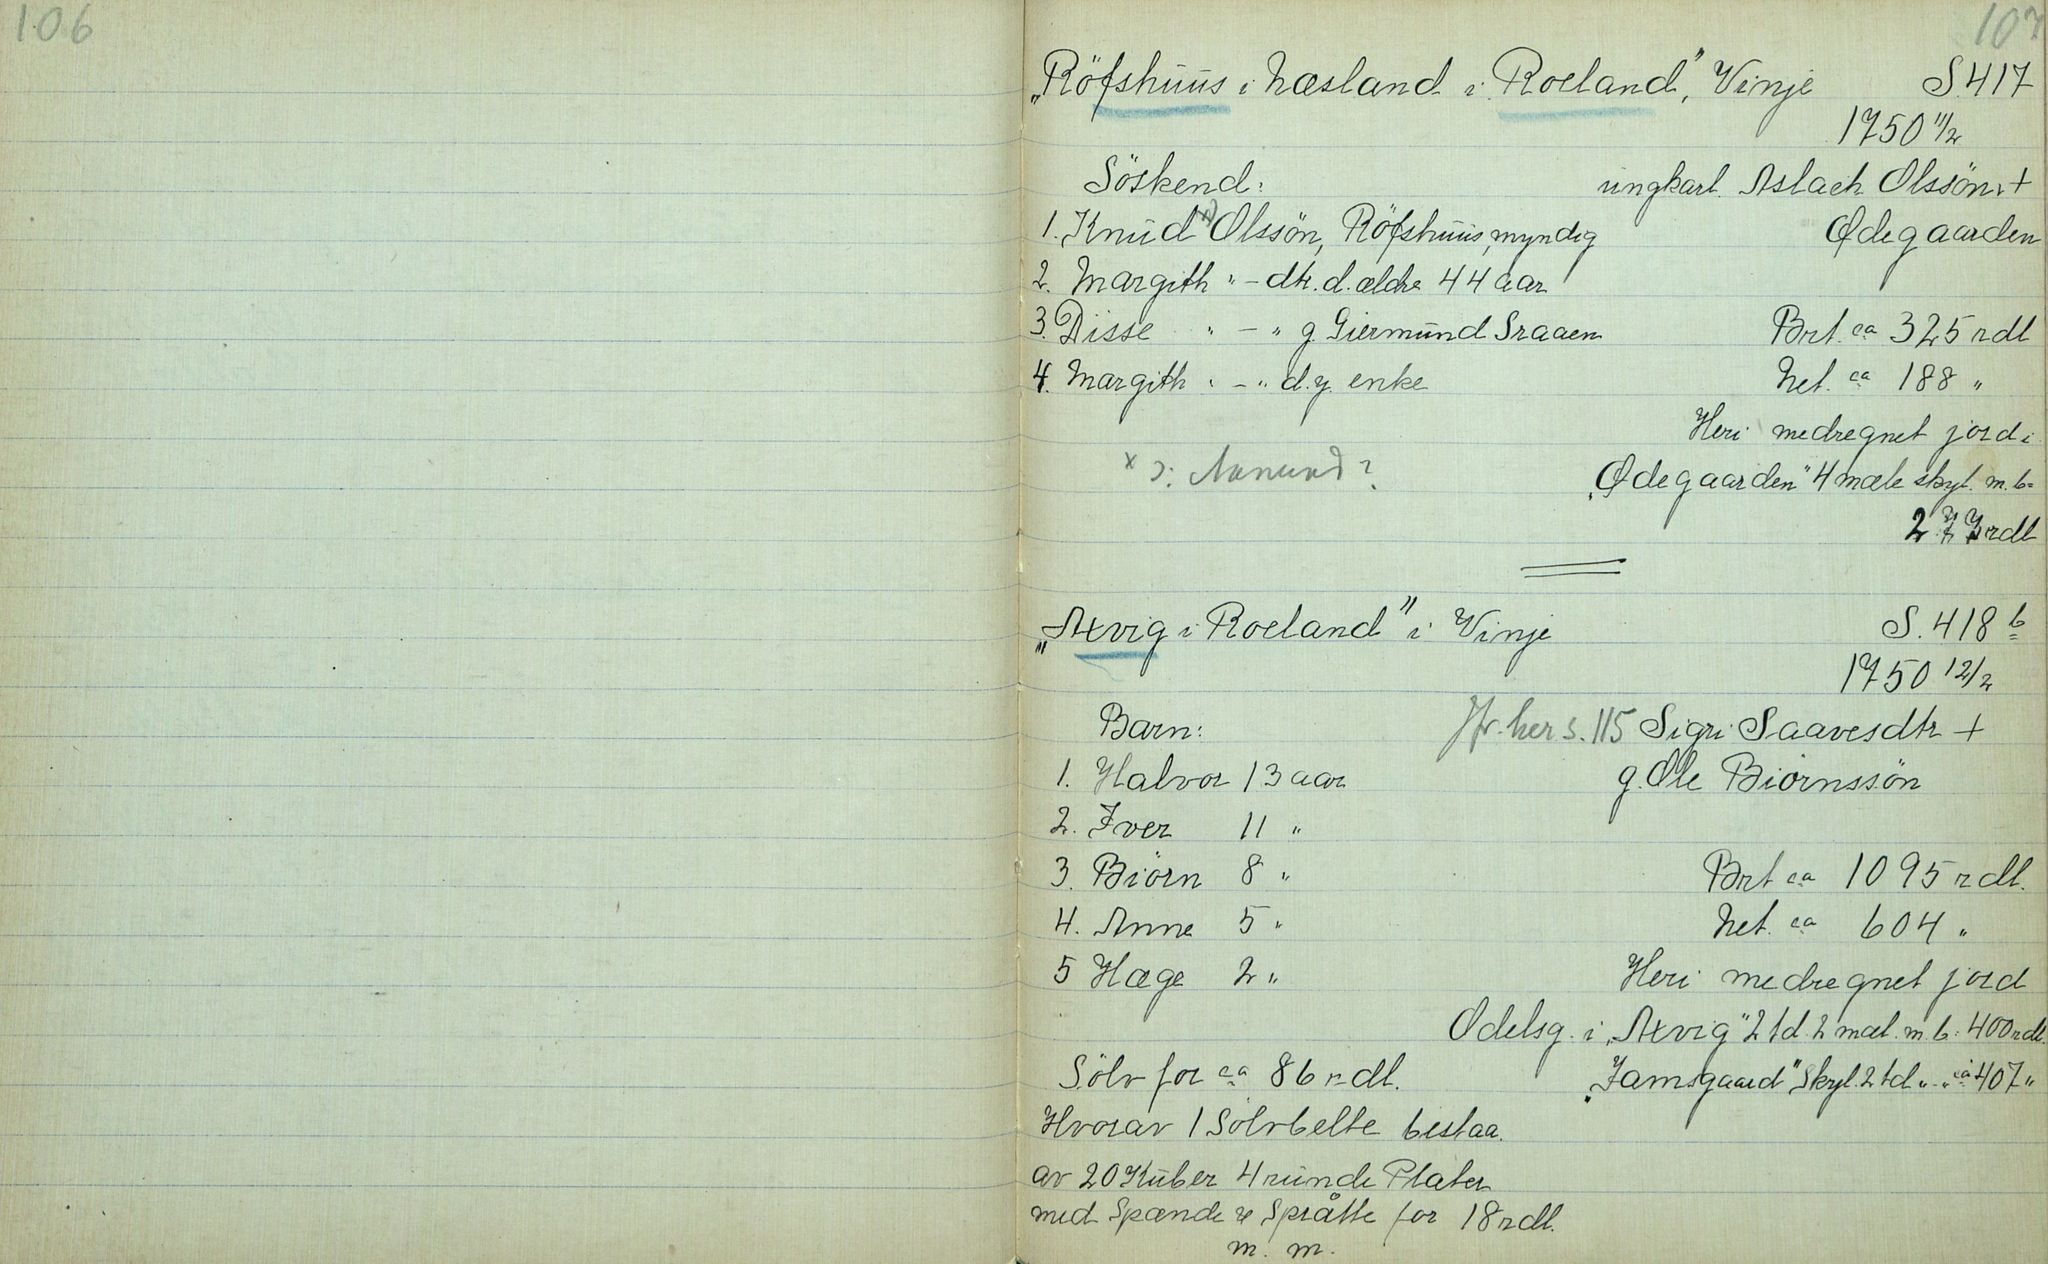 106
107
„Röfshuus i Næsland i Roeland", Vinje S 417
1750 11/2
Söskend: ungkarl. Aslach Olssön +
1. Knud x) Olssön, Röfshuus, myndig Ødegaarden
2. Margith " - dtr. d. ældre 44 aar
3. Disse " - " g. Giermund Sraaen Brt. ca 325 rdl
4. Margith " - " d.y. enke Net. ca 188 "
Heri medregnet jord i
x ɔ: Anund? „Ødegaarden" 4 mæle skyl. m. b=
rdl
„Axvig i Roeland" i Vinje S. 418 b
1750 12/2
Barn: Jfr. her s. 115 Sigri Saavesdtr +
1. Halvor 13 aar g. Ole Biörnssön
2. Iver 11 "
3. Biörn 8 " Brt ca 1095 rdl.
4. Anne 5 " Net. ca 604 "
5 Hæge 2 " Heri medregnet jord
Odelsg. i „Axvig" 2 td. 2 mæl. m. b. 400 rdl.
Sölv for ca 86 rdl. „Jamsgaard" Skyl. 2 td " - " ca 407 "
Hvorav 1 Sölvbelte bestaa.
av 20 Kuber 4 runde Plater
med Spænde & Språtte for 18 rdl.
m. m.